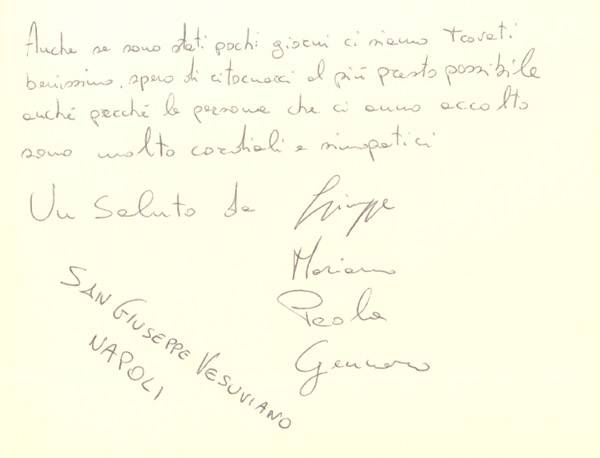 Anche se sono stati pochi giorni ci siamo trovati
benissimo, spero di ritornarci al più presto possibile
anche perché le persone che ci anno accolto
sono molto cordiali e simpatici
Un saluto da Giuseppe
Mariano
Paola
Gennaro
SAN GIUSEPPE VESUVIANO
NAPOLI